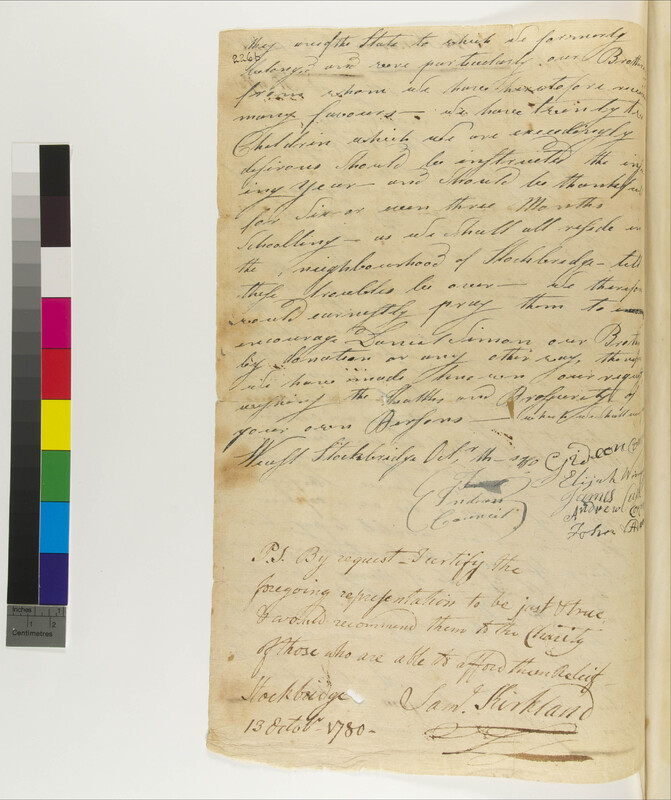 they are of the State to which we formerly
226b
belonged and more particularly our Brothe
from whom we have heretofore recei
many favours — we have twenty
Children which we are exceedingly
desirous should be instructed the
ing Year — and should be thankful
for six or even three Months
Schooling — as we shall all reside in
the neighbourhood of Stockbridge — till
these troubles be over — we therefor
would earnestly pray them to
encourage Daniel Simon our Brother
by donation or any other way, though
we have made known our reque
wishing the Healths and Prosperity of
your own Persons —
West Stockbridge Octr. Gideon
Elijah
Indian James
Council Andrew
P.S. By request — I certify the
foregoing representation to be just & true,
& would recommend them to the Charity
of those who are able to afford them Relief —
Stockbridge Saml. Kirkland
13 Octobr. 1780 —
Inches 1 2
Centimetres